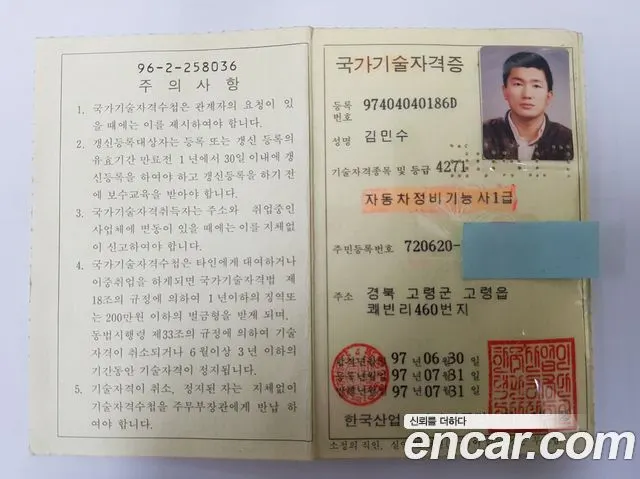 96-2-258036
주 의 사 항
1. 국가기술자격수첩은 관계자의 요청이 있
을 때에는 이를 제시하여야 합니다.
2. 갱신등록대상자는 등록 또는 갱신 등록의
유효기간 만료전 1년에서 30일 이내에 갱
신등록을 하여야 하고 갱신등록을 하기 전
에 보수교육을 받아야 합니다.
3. 국가기술자격취득자는 주소와 취업중인
사업체에 변동이 있을 때에는 이를 지체없
이 신고하여야 합니다.
4. 국가기술자격수첩은 타인에게 대여하거나
이중취업을 하게되면 국가기술자격법 제
18조의 규정에 의하여 1년이하의 징역또
는 200만원 이하의 벌금형을 받게 되며,
동법시행령 제33조의 규정에 의하여 기술
자격이 취소되거나 6월이상 3년 이하의
기간동안 기술자격이 정지됩니다.
5. 기술자격이 취소, 정지된 자는 지체없이
기술자격수첩을 주무부장관에게 반납 하
여야 합니다.
국가기술자격증
등록
번호 97404040186D
성명 김민수
기술자격종목 및 등급 4271
자동차정비기능사1급
주민등록번호 720620-
주소 경북 고령군 고령읍
쾌빈리460번지
합격년월일 97년 06월 30일
등록년월일 97년 07월 31일
97년 07월 31일
한국산업
소정의 직인,
신뢰를 더하다
encar.com